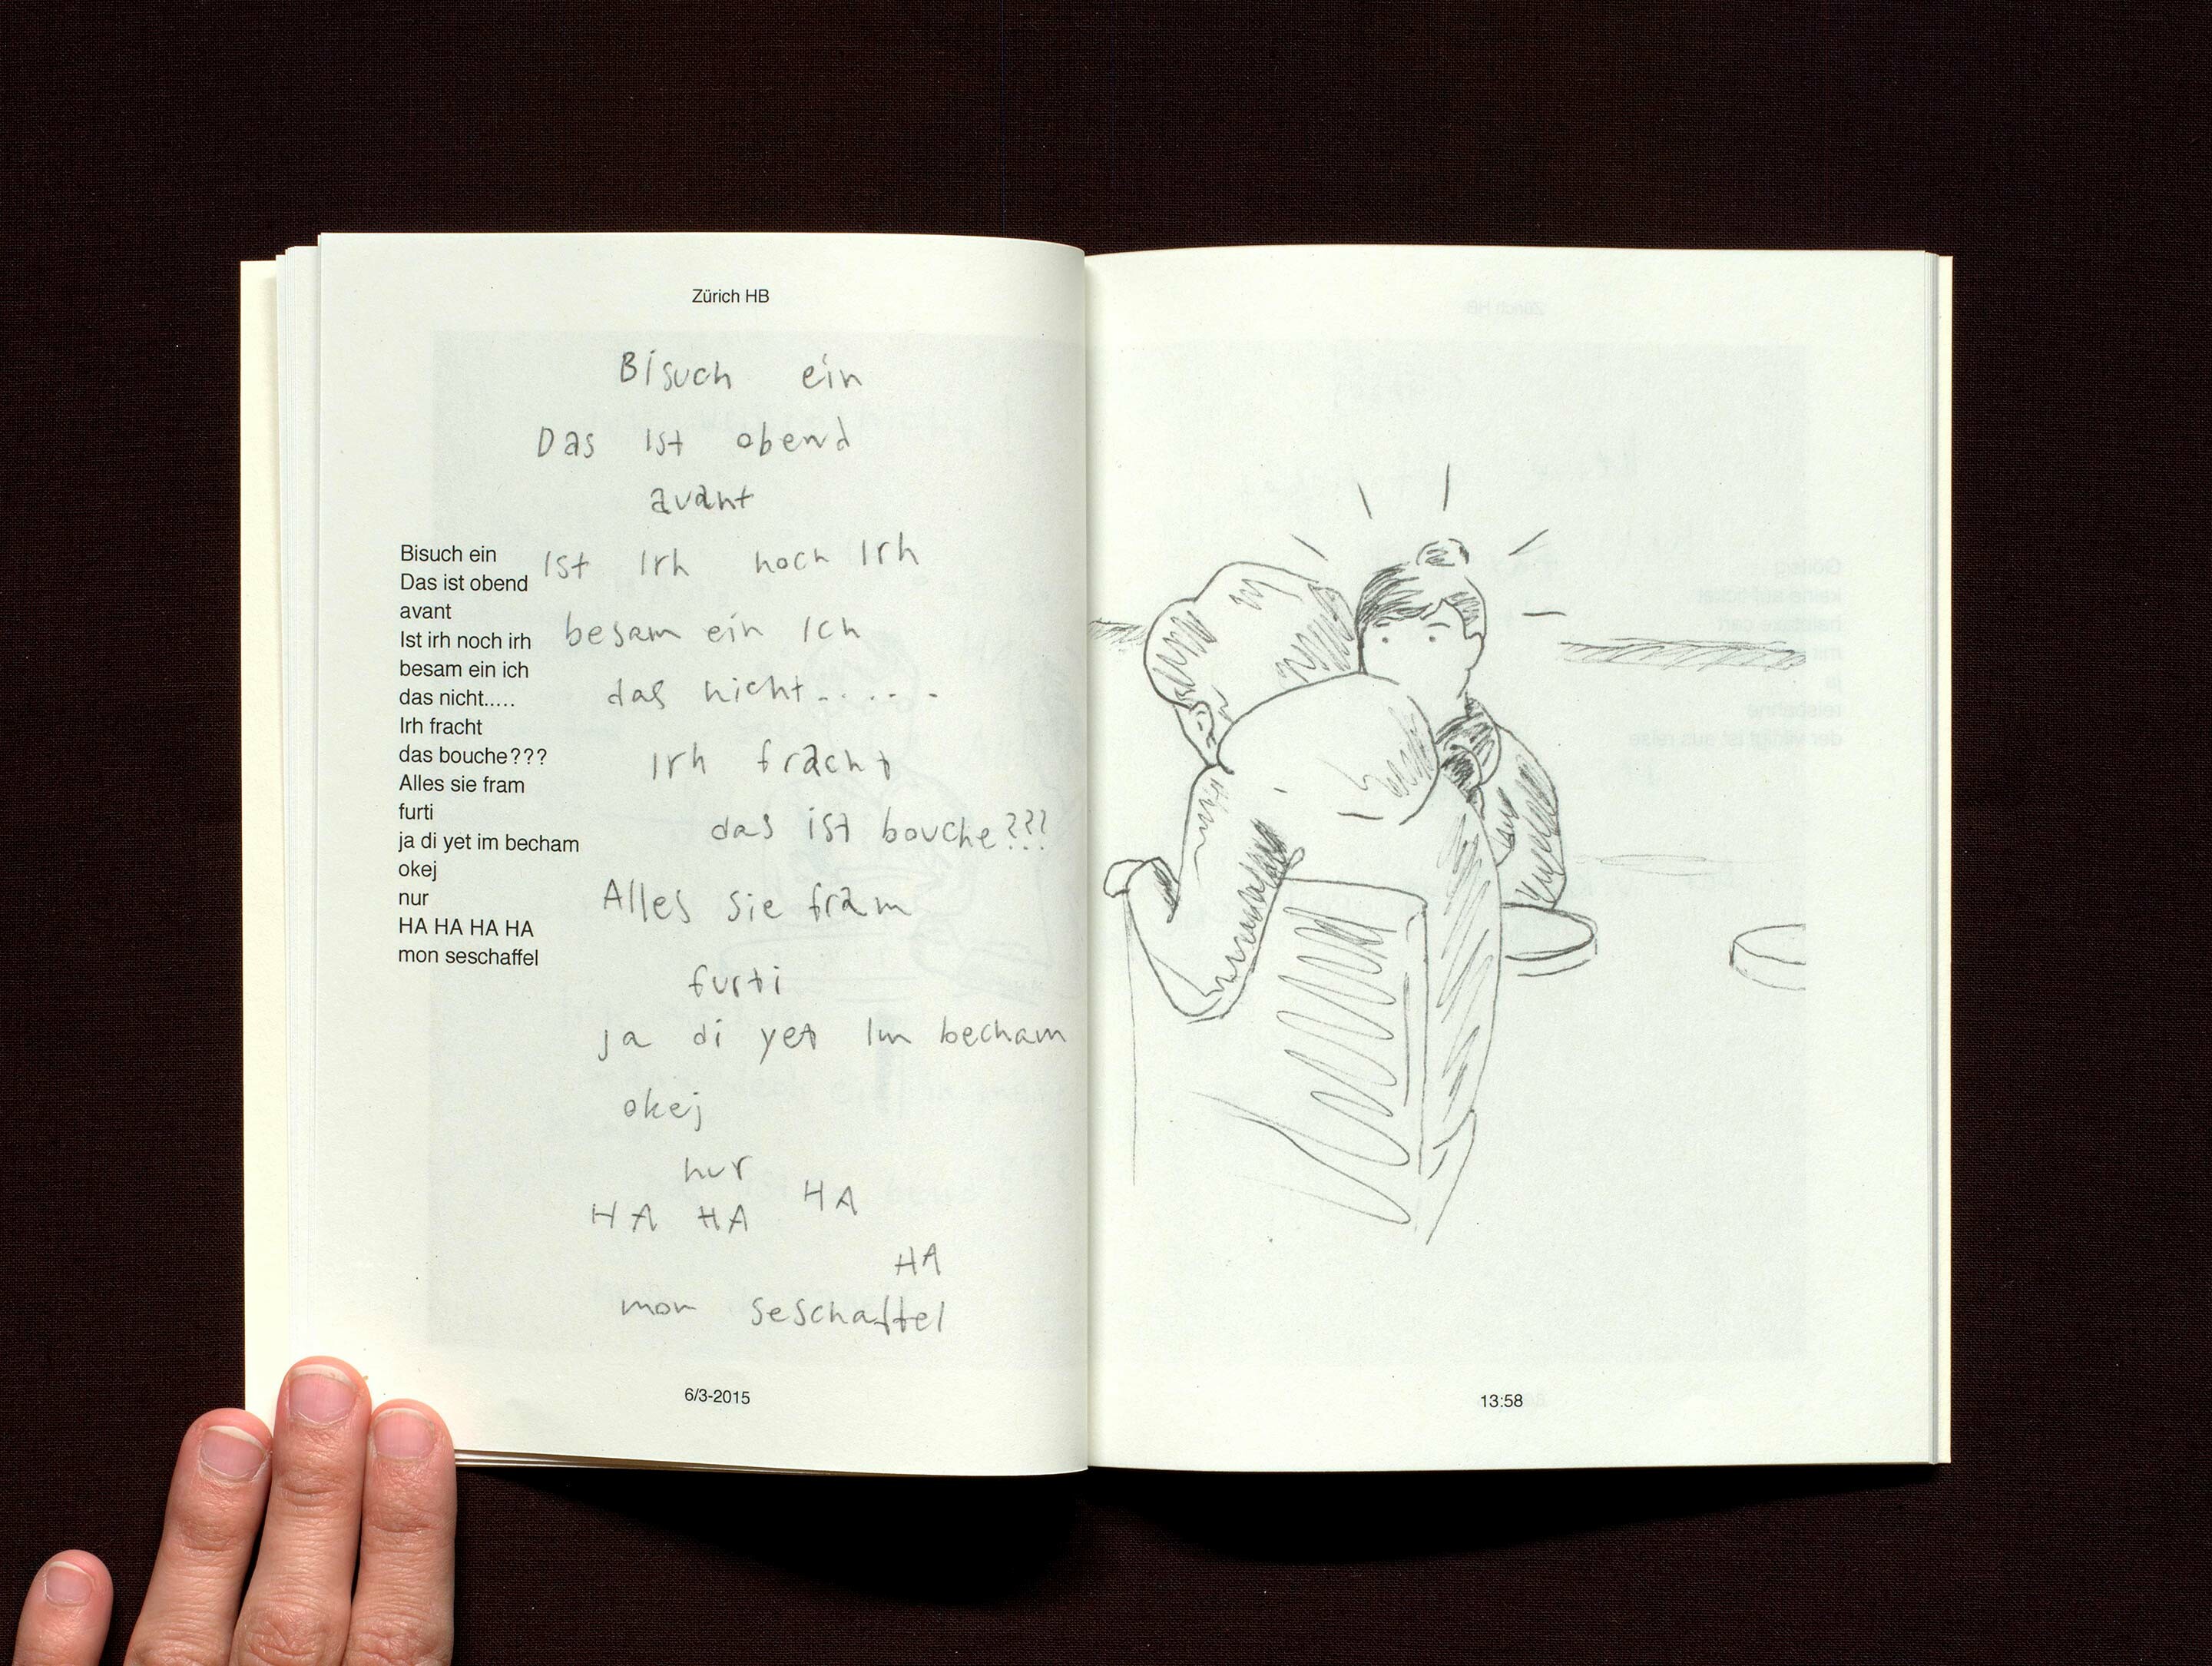 Zürich HB
Bisuch ein
Das ist obend
avant
Ist irh noch irh
besam ein ich
das nicht.....
Irh fracht
das bouche???
Alles sie fram
furti
ja di yet im becham
okej
nur
HA HA HA HA
mon seschaffel
Bisuch ein
Das ist obend
avant
Ist Irh noch Irh
besam ein Ich
das nicht......
Irh fracht
das ist bouche???
Alles sie fram
furti
ja di yet Im becham
okej
nur
HA HA HA
HA
mon seschaffel
6/3-2015
13:58